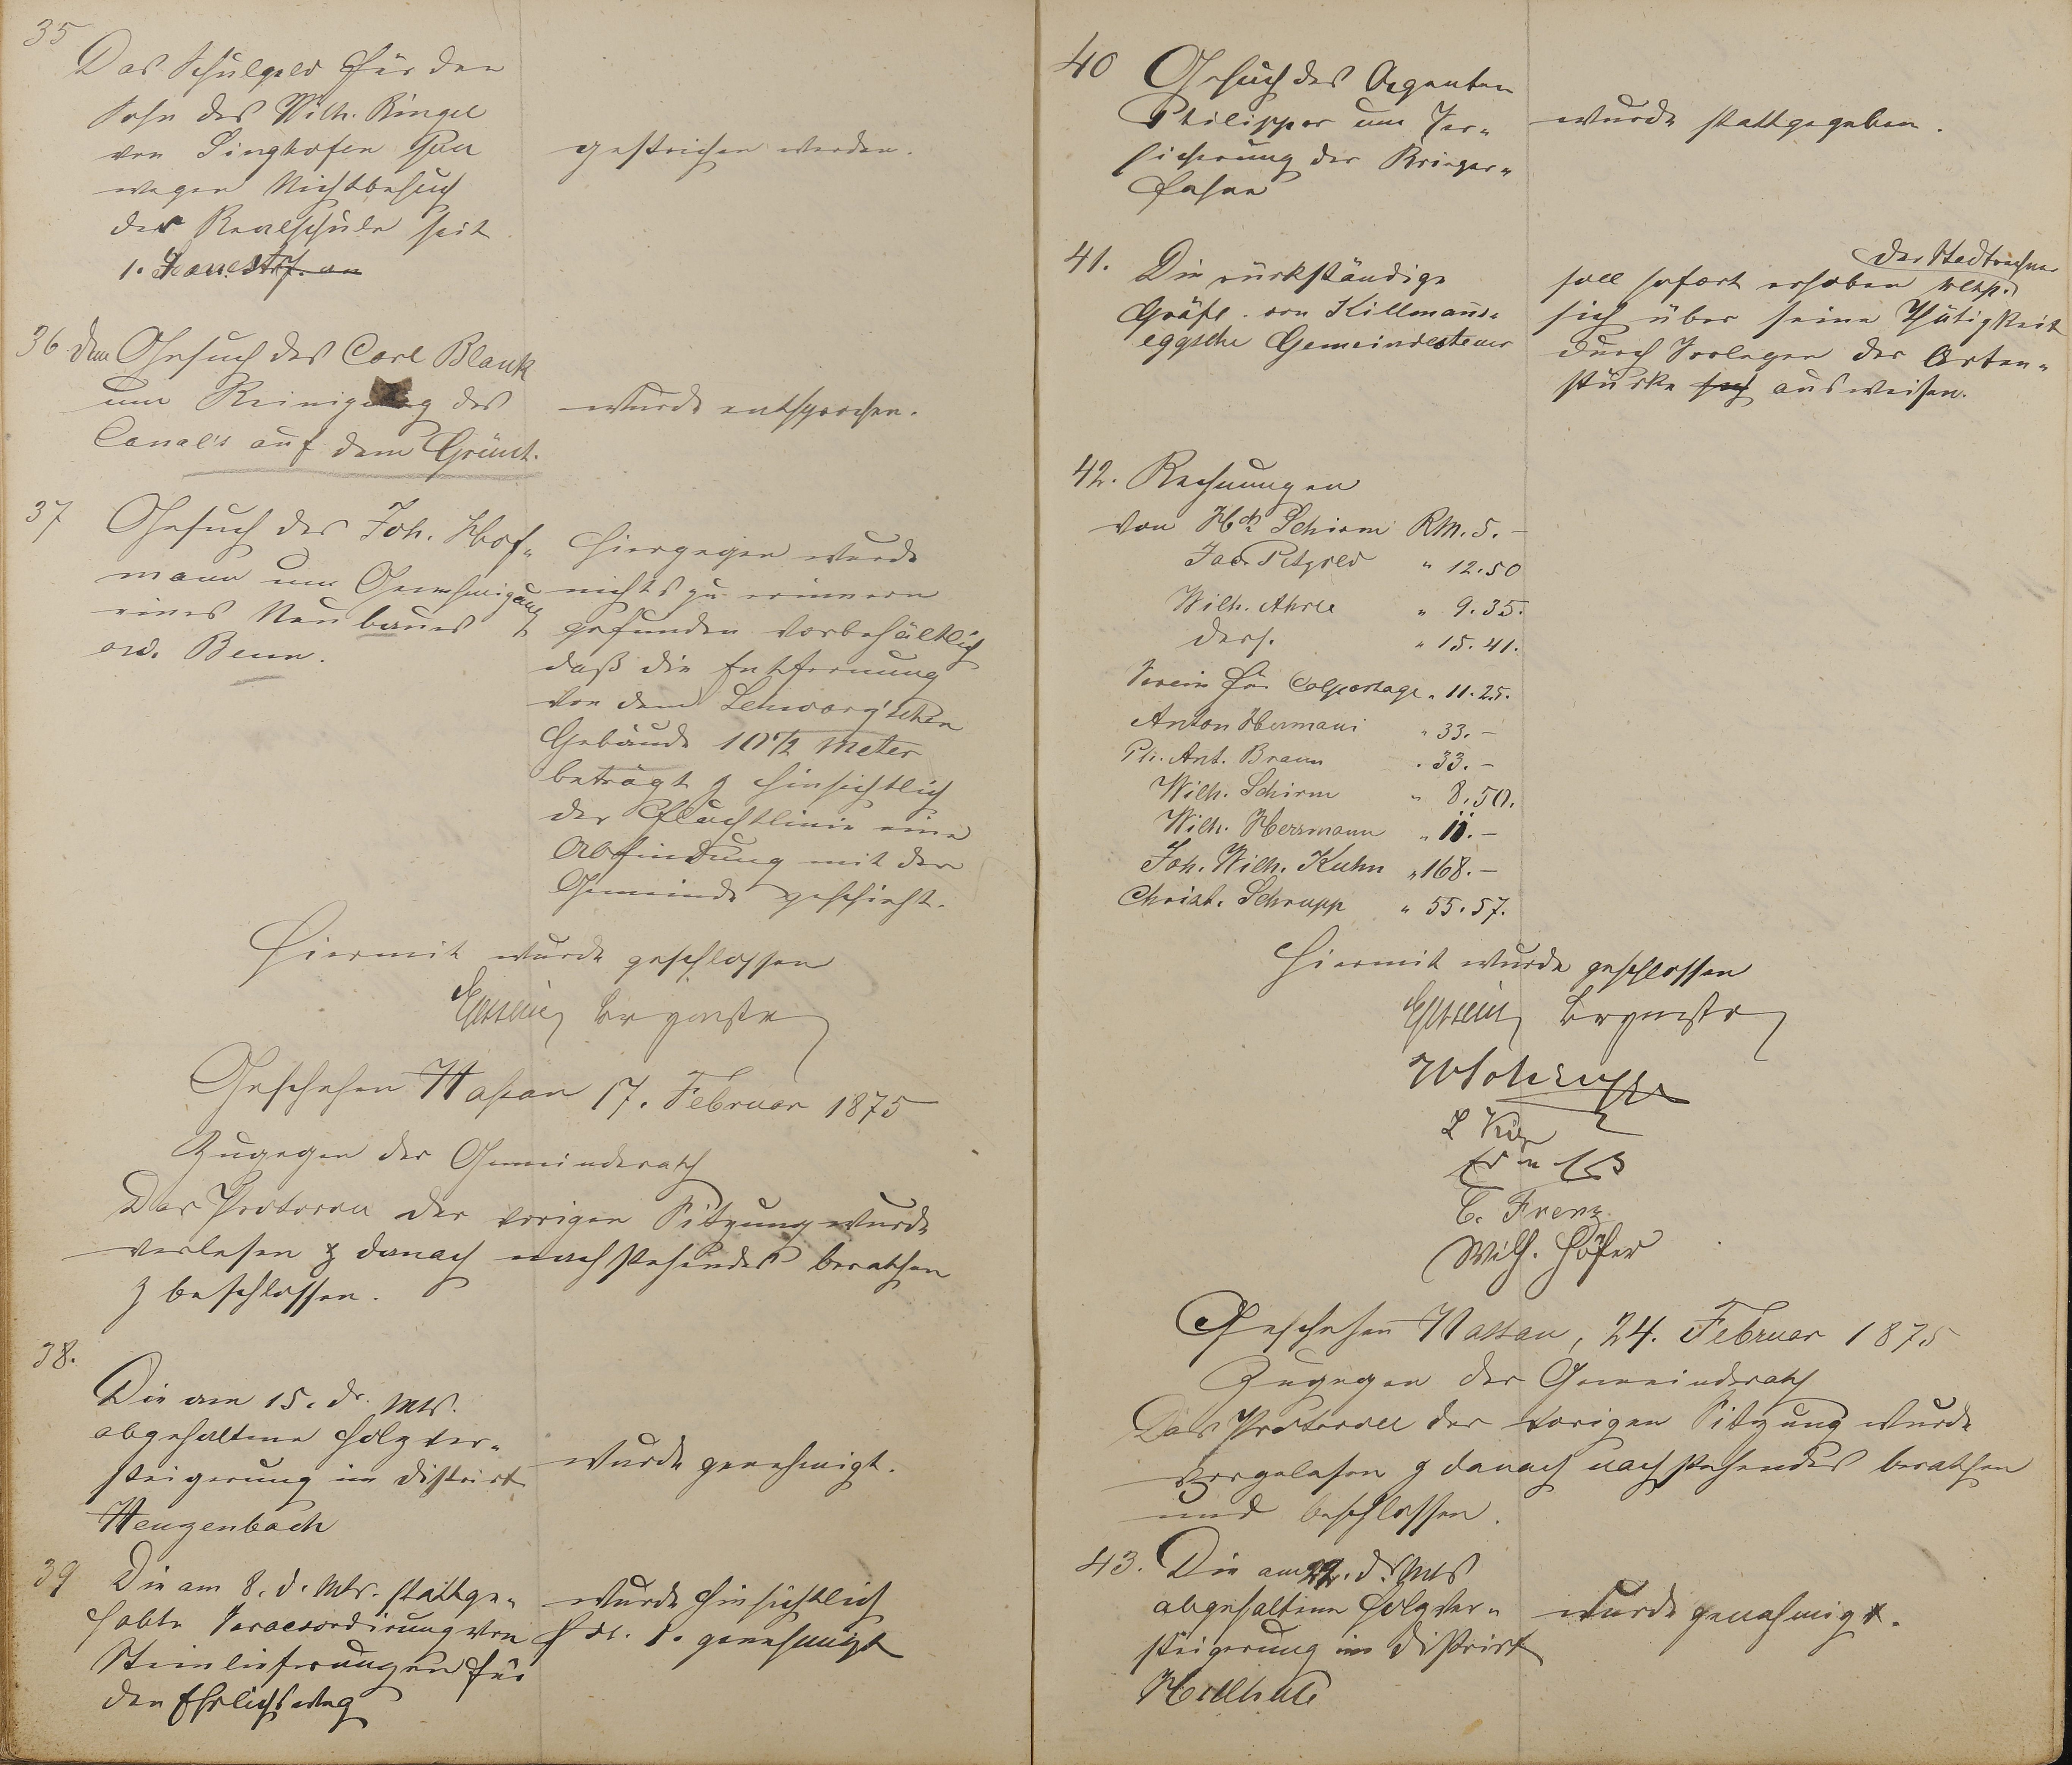 35
Das Schulgeld für den
Sohn des Wilh. Ringel
von Singhofen soll
wegen Nichtbesuch
der Realschule seit
1.
gestrichen werden.
36. Dem Gesuch des Carl Blank
um Reinigung des
Canal's auf dem Grünt.
wurde entsprochen.
37 Gesuch des Joh. Hof-
mann um Genehmigung
eines Neubaues
Hiergegen wurde
nichts zu erinnern
gefunden vorbehältlich
daß die Entfernung
von dem
Gebäude 10 1/2 Meter
beträgt & hinsichtlich
der Fluchtlinie eine
Abfindung mit der
Gemeinde geschieht.
Hiermit wurde geschlossen
Brgmstr
Geschehen Nassau 17. Februar 1875
Zugegen der Gemeinderath
Das Protocoll der vorigen Sitzung wurde
verlesen & danach nachstehendes berathen
& beschlossen.
38.
Die am 15. ds. Mts.
abgehaltene Holzver-
steigerung im District
Hengenbach
wurde genehmigt.
39 Die am 8. d. Mts. stattge-
habte Veraccordirung von
Steinlieferungen für
den Ehrlichsweg
wurde hinsichtlich
genehmigt
40 Gesuch des Agenten
Philippar um Ver-
sicherung der Krieger-
fahne
wurde stattgegeben.
41. Die rückständige
Gräfl. von Killmanns-
eggsche Gemeindesteuer
der Stadtrechner
soll sofort erhoben resp.
sich über seine Thätigkeit
durch Vorlagen der Acten-
stücke sich ausweisen.
42. Rechnungen
von Hch Schirm RM. 5.-
Jac. Petzold " 12.50
Wilh. Ahrle " 9.35.
ders. " 15.41.
Verein für Colportage " 11.25.
Anton Hermani " 33.-
Ph. Ant. Braun " 33.-
Wilh. Schirm " 8.50.
Wilh. Herrmann " 11.-
Joh. Wilh. Kuhn " 168.-
Christ. Schrupp " 55.57.
Hiermit wurde geschlossen
Brgmstr
W Schrupp
C. Frenz.
Wilh. Höfer
Geschehen Nassau, 24. Februar 1875
Zugegen der Gemeinderath
Das Protocoll der vorigen Sitzung wurde
vorgelesen & danach nachstehendes berathen
und beschlossen.
43. Die am 22. d. Mts
abgehaltene Holzver-
steigerung im District
wurde genehmigt.